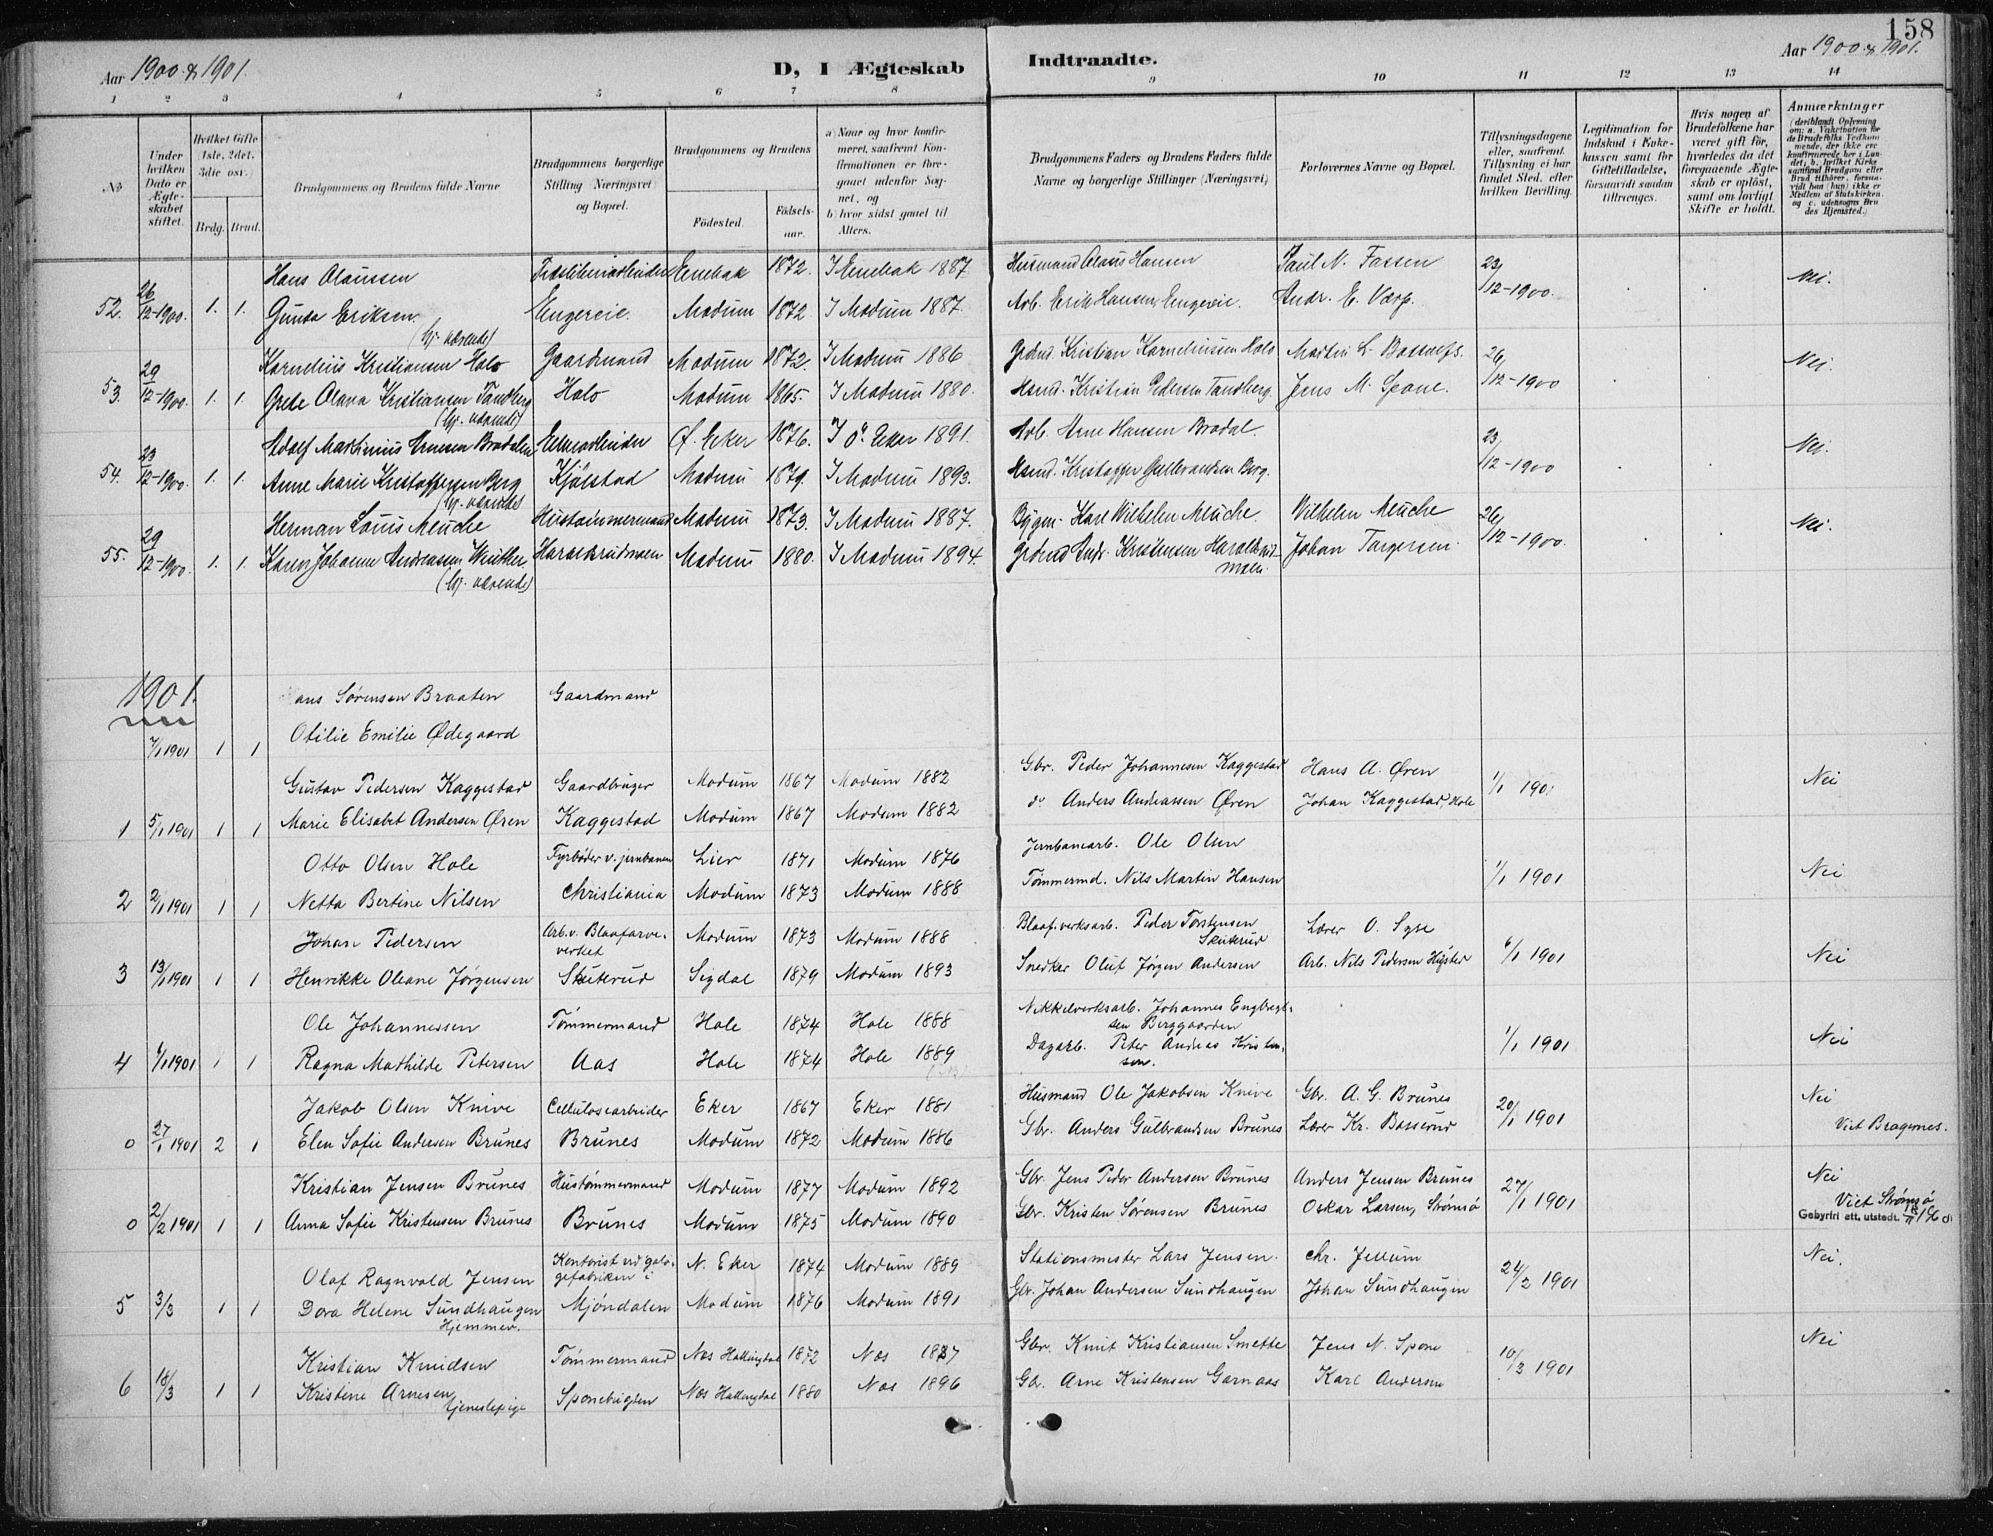 158
Aar 1900 & 1901.
D, I Ægteskab Indtraadte.
Aar 1900 & 1901.
1 2 3 4 5 6 7 8 9 10 11 12 13 14
No
Under hvilken Dato er Ægteskabet stiftet.
Hvilket Gifte 1ste, 2det, 3die osv.
Brdg. Brud.
Brudgommens og Brudens fulde Navne
Brudgommens borgerlige Stilling (Næringsvei) og Bopæl.
Brudgommens og Brudens
Fødested.
Fødselsaar.
a) Naar og hvor konfirmeret, saafremt Konfirmationen er foregaaet udenfor Sognet, og
b) hvor sidst gaaet til Alters.
Brudgommens Faders og Brudens Faders fulde Navne og borgerlige Stillinger (Næringsvei)
Forlovernes Navne og Bopæl.
Tillysningsdagene eller, saafremt Tillysning ei har fundet Sted, efter hvilken Bevilling.
Legitimation for Indskud i Enkekassen samt for Giftetilladelse, forsaavidt saadan tiltrænges.
Hvis nogen af Brudefolkene har været gift, hvorledes da det foregaaende Ægteskab er opløst, samt om lovligt Skifte er holdt.
Anmærkninger
Hans Olaussen Enebak 1872. I Enebak 1887. Husmand Olaus Hansen Paul N. Fossen 23/12-1900. Nei.
52. 26/12-1900. 1. 1. Gunda Eriksen Engereie. Modum 1872 I Modum 1887. Arb. Erik Hansen, Engereie. Andr. E. Værp.
Kornelius Kristiansen Holo Gaardmand Modum 1872. I Modum 1886 Kristian Korneliussen Holo 26/12-1900 Nei.
53. 29/12-1900. 1. 1. Grete Olava Kristiansen Tandberg Holo Modum 1865. I Modum 1880. Kristian Pedersen Tandberg. Jens M. Spone.
Adolf Martinius Arnesen Brødalen Ø. Eker 1876. I Ø. Eker 1891. Arb. Arne Hansen Brødal. 23/12-1900 Nei.
54. 23/12-1900. 1. 1. Anne Marie Kristoffersen Berg Kjølstad Modum 1879. I Modum 1893. Kristoffer Gulbrandsen Berg.
Herman Louis Meuche Hustømmermand Modum 1873. I Modum 1887. Karl Wilhelm Meuche Wilhelm Meuche 26/12-1900. Nei.
55. 29/12-1900. 1. 1. Karen Johanne Andreassen Modum 1880. I Modum 1894. Andr. Kristensen Johan Torgersen.
1901.
Hans Sørensen Braaten Gaardmand
7/1 1901 1 1 Otilie Emilie Ødegaard
Gustav Pedersen Kaggestad Gaardbruger Modum 1867 Modum 1882 Gbr. Peder Johannesen Kaggestad Hans A. Øren 1/1 1901 Nei
1 5/1 1901 1 1 Marie Elisabet Andersen Øren Kaggestad Modum 1867 Modum 1882 do Anders Andreassen Øren Johan Kaggestad, Hole
Otto Olsen Hole Fyrbøder v. jernbanen Lier 1871 Modum 1876 Jernbanearb. Ole Olsen 1/1 1901 Nei
2 2/1 1901 1 1 Netta Bertine Nilsen Christiania Modum 1873 Modum 1888 Tømmermd. Nils Martin Hansen
Johan Pedersen Arb. v. Blaafarveverket Modum 1873 Modum 1888 Blaaf.verksarb. Peder Torstensen Skuterud Lærer O. Syse 6/1 1901 Nei
3 13/1 1901 1 1 Henrikke Oleane Jørgensen Skuterud Sigdal 1879 Modum 1893 Snedker Oluf Jørgen Andersen Arb. Nils Pedersen
Ole Johannessen Tømmermand Hole 1874 Hole 1888 Nikkelverksarb. Johannes Engbregtsen Berggaarden 1/1 1901 Nei
4 1/1 1901 1 1 Ragna Mathilde Petersen Aas Hole 1874 Hole 1889 Dagarb. Peter Andreas Kristensen.
Jakob Olsen Knive Cellulosearbeider Eker 1867 Eker 1881 Husmand Ole Jakobsen Knive Gbr. A. G. Brunes 20/1 1901 Nei
0 27/1 1901 2 1 Elen Sofie Andersen Brunes Brunes Modum 1872 Modum 1886 Gbr. Anders Gulbrandsen Brunes Lærer Kr. Basserud Viet Bragernes.
Kristian Jensen Brunes Hustømmermand Modum 1877 Modum 1892 Gbr. Jens Peder Andersen Brunes Anders Jensen Brunes 27/1 1901 Nei
0 2/2 1901 1 1 Anna Sofie Kristensen Brunes Brunes Modum 1875 Modum 1890 Gbr. Kristen Sørensen Brunes Oskar Larsen, Strømsø Viet Strømsø
Gebyrfri att. utstedt.
Olaf Ragnvald Jensen Kontorist N. Eker 1874 Modum 1889 Stationsmester Lars Jensen. Chr. Jellum 24/2 1901 Nei.
5 3/3 1 1 Dora Helene Sundhaugen Hjemmev. Mjøndalen Modum 1876 Modum 1891 Gbr. Johan Andersen Sundhaugen Johan Sundhaugen
Kristian Knudsen Tømmermand Nes Hallingdal 1872 Nes 1887 Gbr. Knut Kristiansen Smette Jens N. Spone 10/3 1901 Nei
6 18/3 1 1 Kristine Arnesen tjenestepige Nes Hallingdal 1880 Nes 1896 Gb. Arne Kristensen Garnaas Karl Andersen